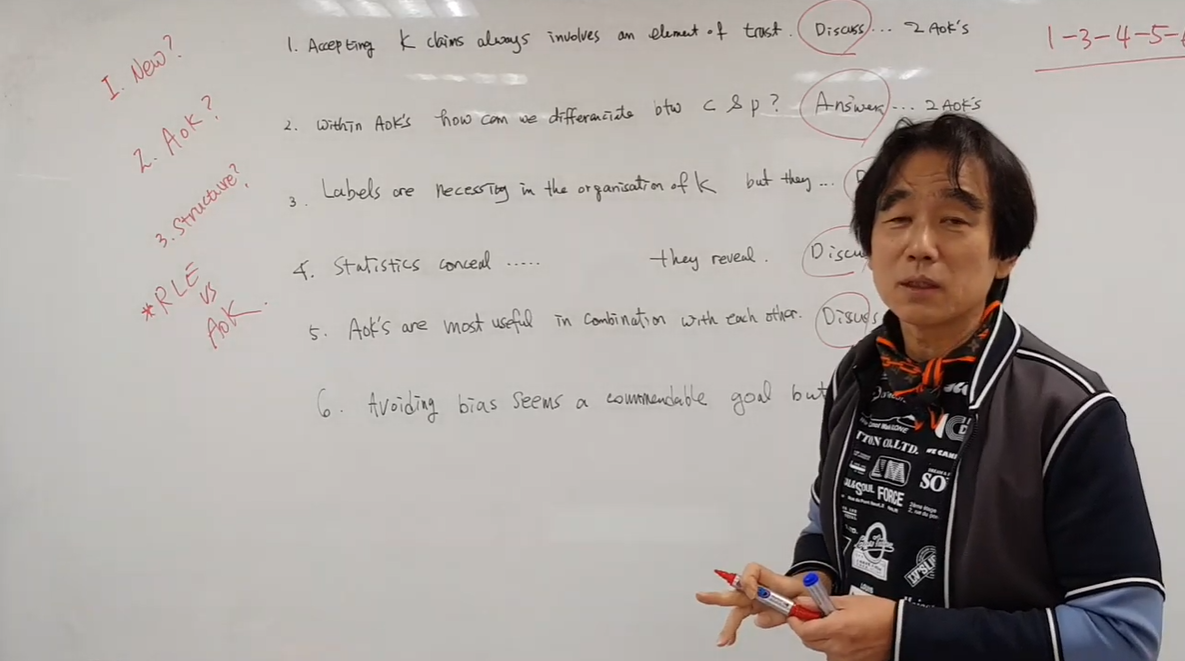 1. Accepting K claims always involves an element of trust. Discuss ... 2 AoK's
1-3-4-5-
I. New?
2. Within AoK's how can we differenciate btw C & P? Answer ... 2 AoK's
2. AoK?
3. Labels are necessity in the organisation of K but they ...
3. Structure?
4. Statistics conceal ..... they reveal. Discu
*RLE
vs
AoK
5. AoK's are most useful in combination with each other. Discuss
6. Avoiding bias seems a commendable goal but
TTON CO.,LTD.
SO
SOUL FORCE
LET'S LI